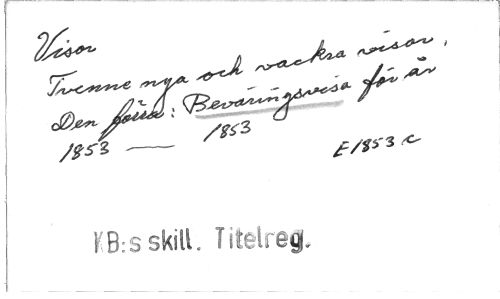 Visor
Tvenne nya och vackra visor.
Den förra: Beväringsvisa för år
1853 — 1853
E 1853 c
KB:s skill. Titelreg.